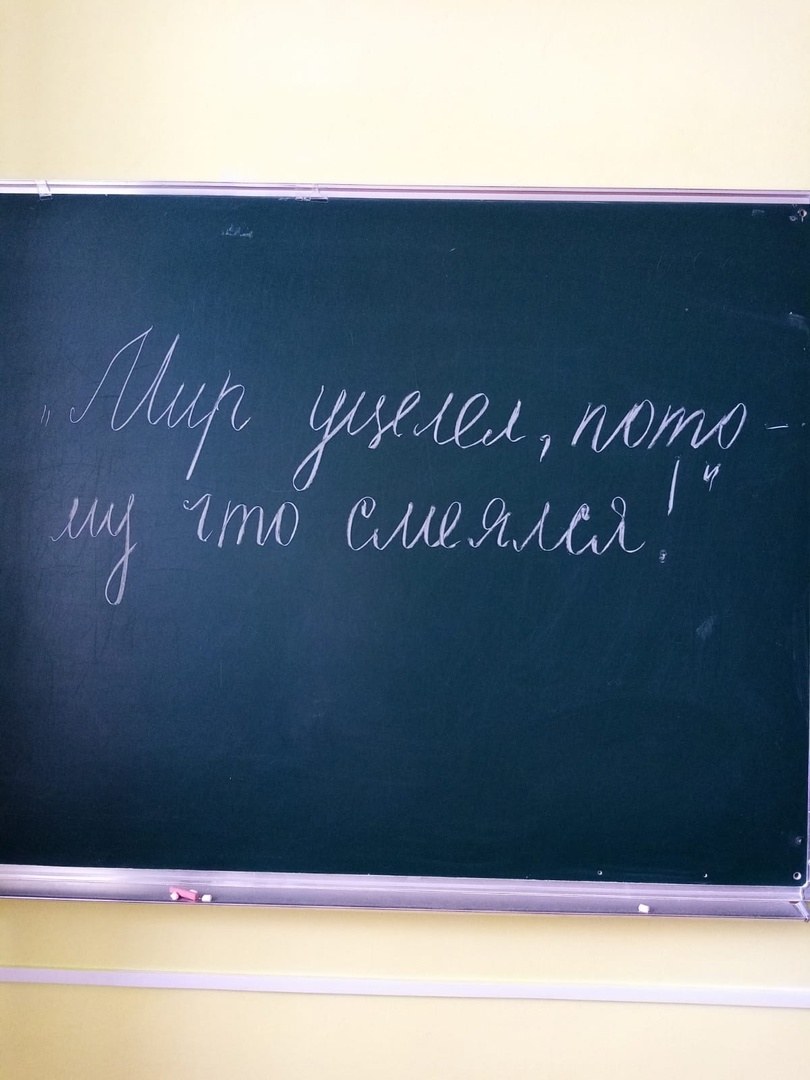 „Мир уцелел, пото-
му что смеялся!“